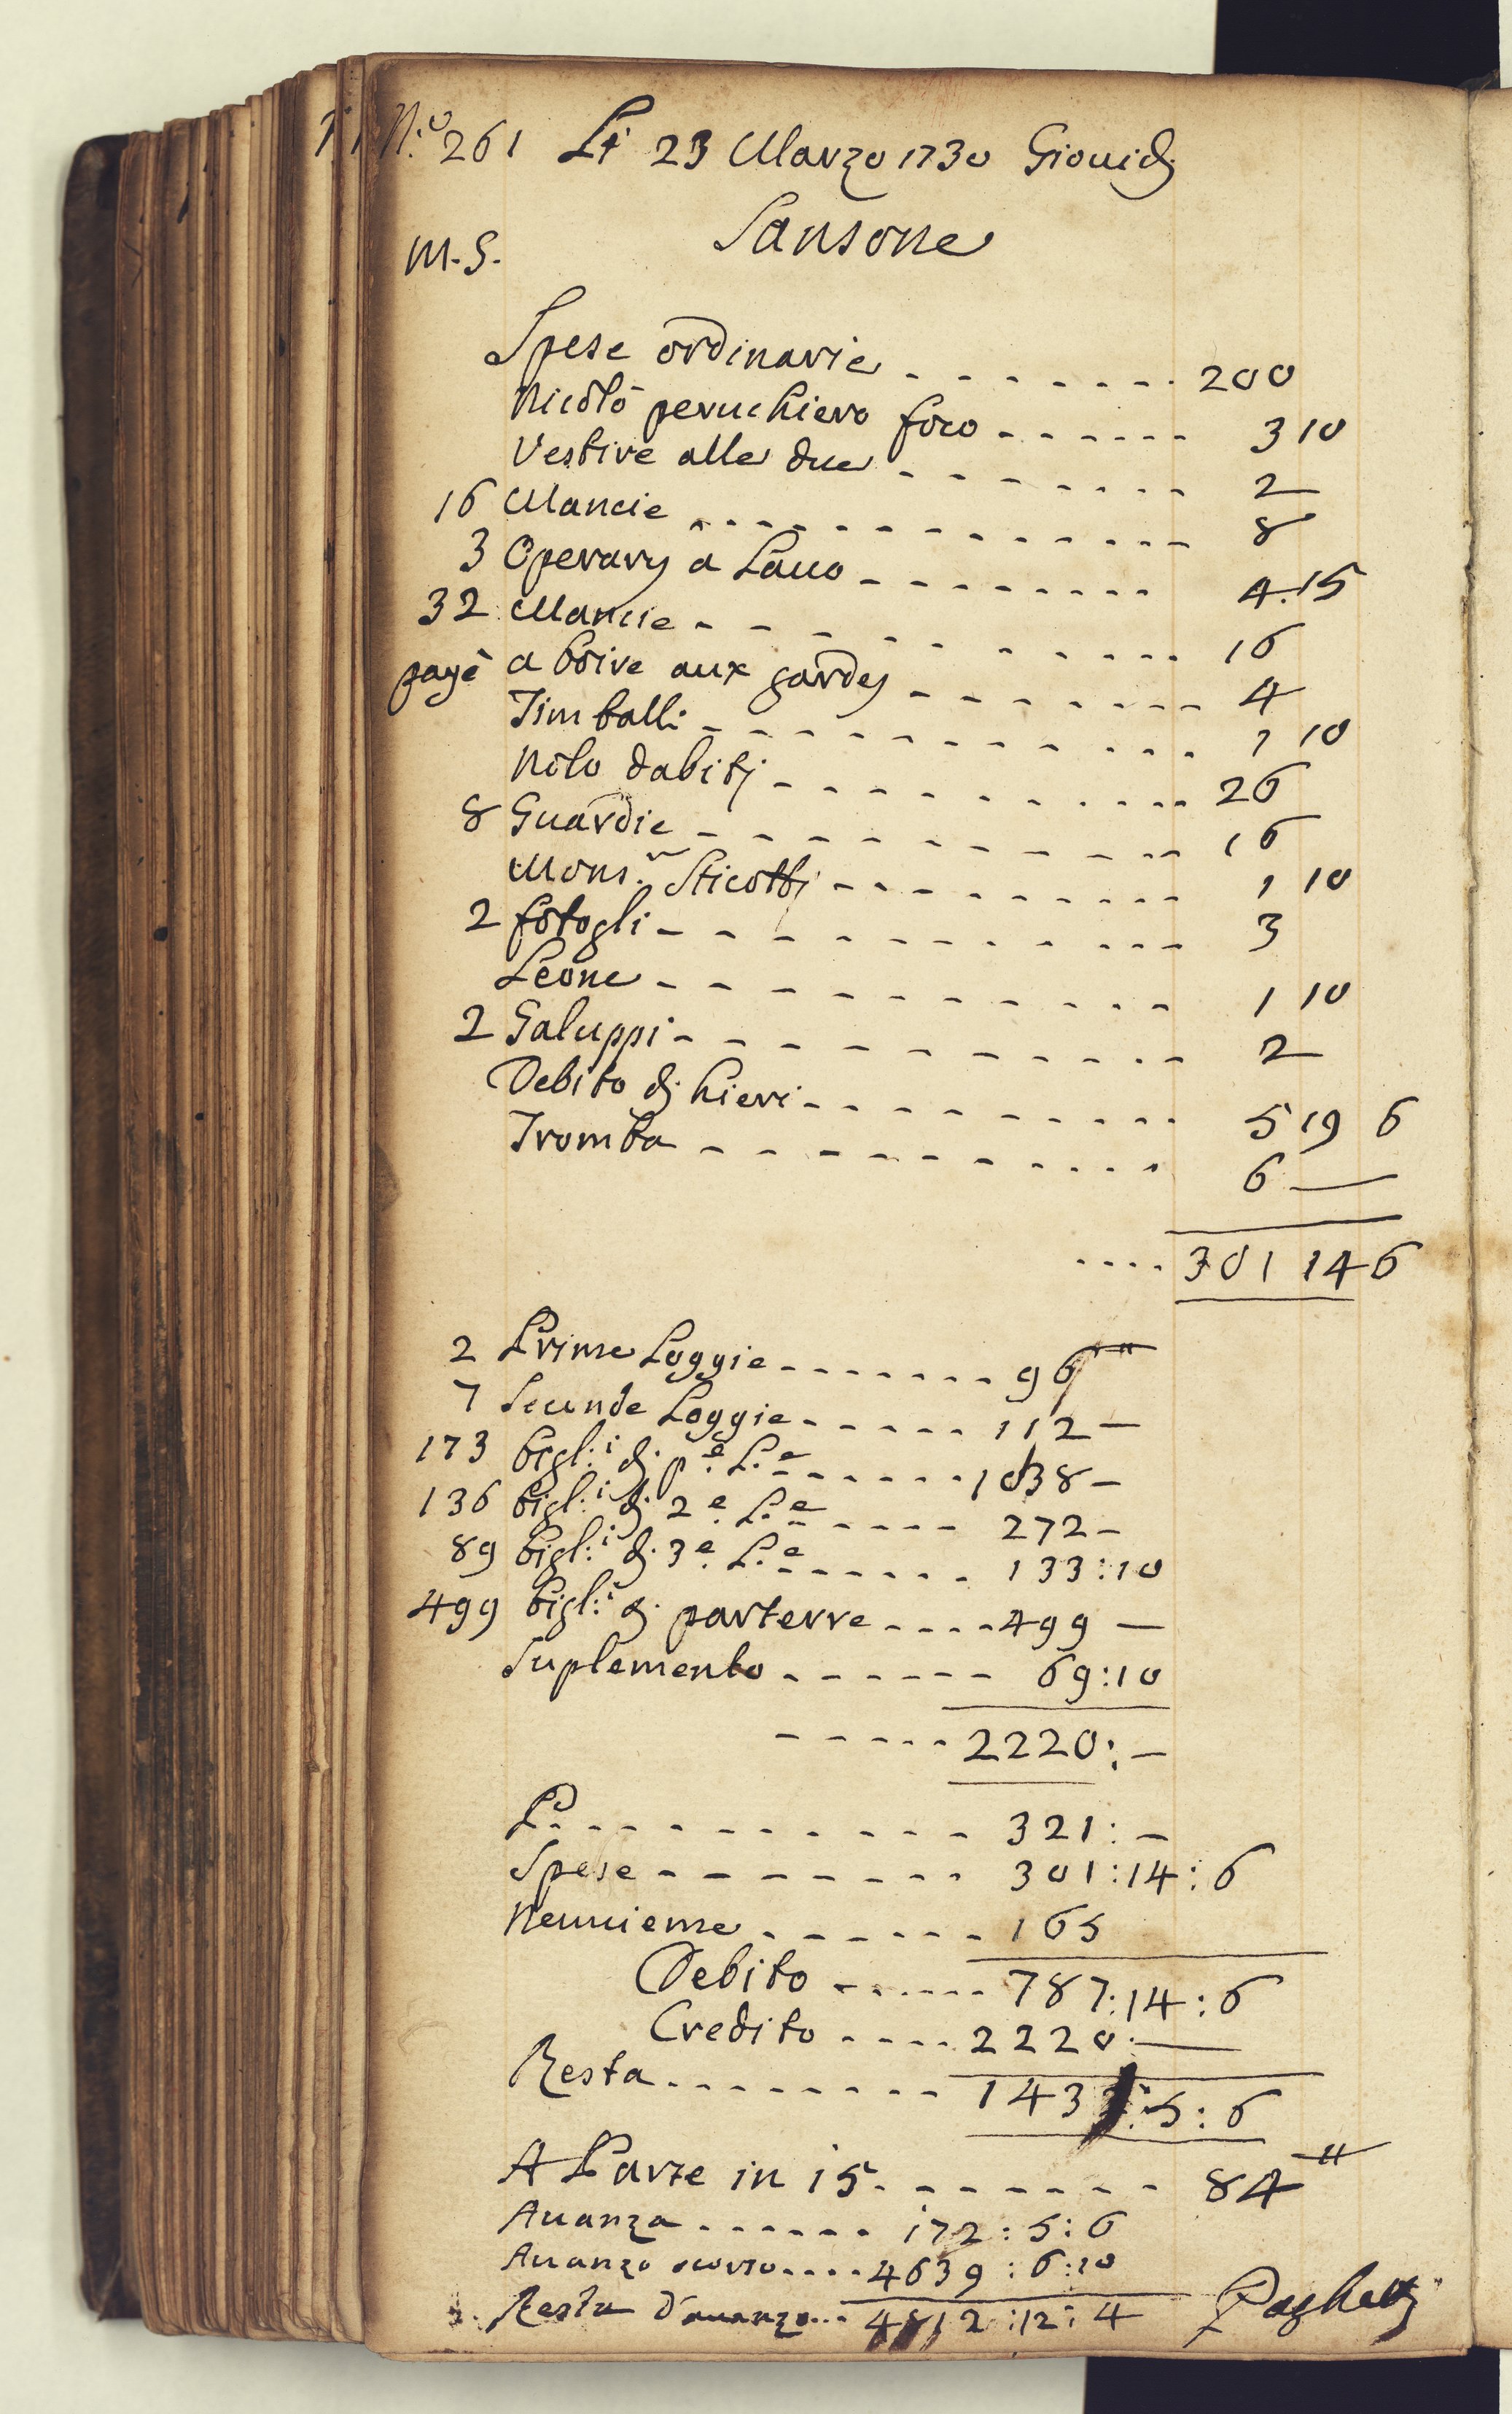 N.º 261 Li 23 Marzo 1730 Giouidj
Sansone
M. S.
Spese ordinarie - - - - - - - 200
Nicolò peruchiero foco - - - - - - 3 10
Vestire alle due - - - - - - - - 2
16 Mancie - - - - - - - - - - - 8
3 Operary a Lauo - - - - - - - - 4.15
32 Mancie - - - - - - - - - - 16
payè a boire aux gardes - - - - - - - - 4
Timballi - - - - - - - - - - - 1 10
Nolo dabitj - - - - - - - - - - 26
8 Guardie - - - - - - - - - - 16
Mons.r Sticottj - - - - - - - - - 1 10
2 fotogli - - - - - - - - - - - 3
Leone - - - - - - - - - - 1 10
2 Galuppi - - - - - - - - - - 2
Debito dj hieri - - - - - - - - - - 5 19 6
Tromba - - - - - - - - - - - 6 —
.... 301 14 6
2 Prime Loggie - - - - - - - 96 "
7 Secunde Loggie - - - - - 112 —
173 bigl:i dj p.e L.e - - - - - - 1038 —
136 bigl:i dj 2.e L.e - - - - - 272 —
89 bigl:i dj 3.e L.e - - - - - - 133:10
499 bigl:i dj parterre - - - - 499 —
Suplemento - - - - - - 69:10
- - - - - 2220: —
P. - - - - - - - - - - 321: —
Spese - - - - - - - 301:14:6
Neuuieme - - - - - - 165
Debito - - - - - - 787:14:6
Credito - - - - 2220. —
Resta - - - - - - - - 143 :5:6
A Parte in 15 - - - - - - - 84 "
Auanza - - - - - - 172:5:6
Auanzo scorso.... 4639:6:10
Resta d'auanzo... 4812:12:4 Paghetti